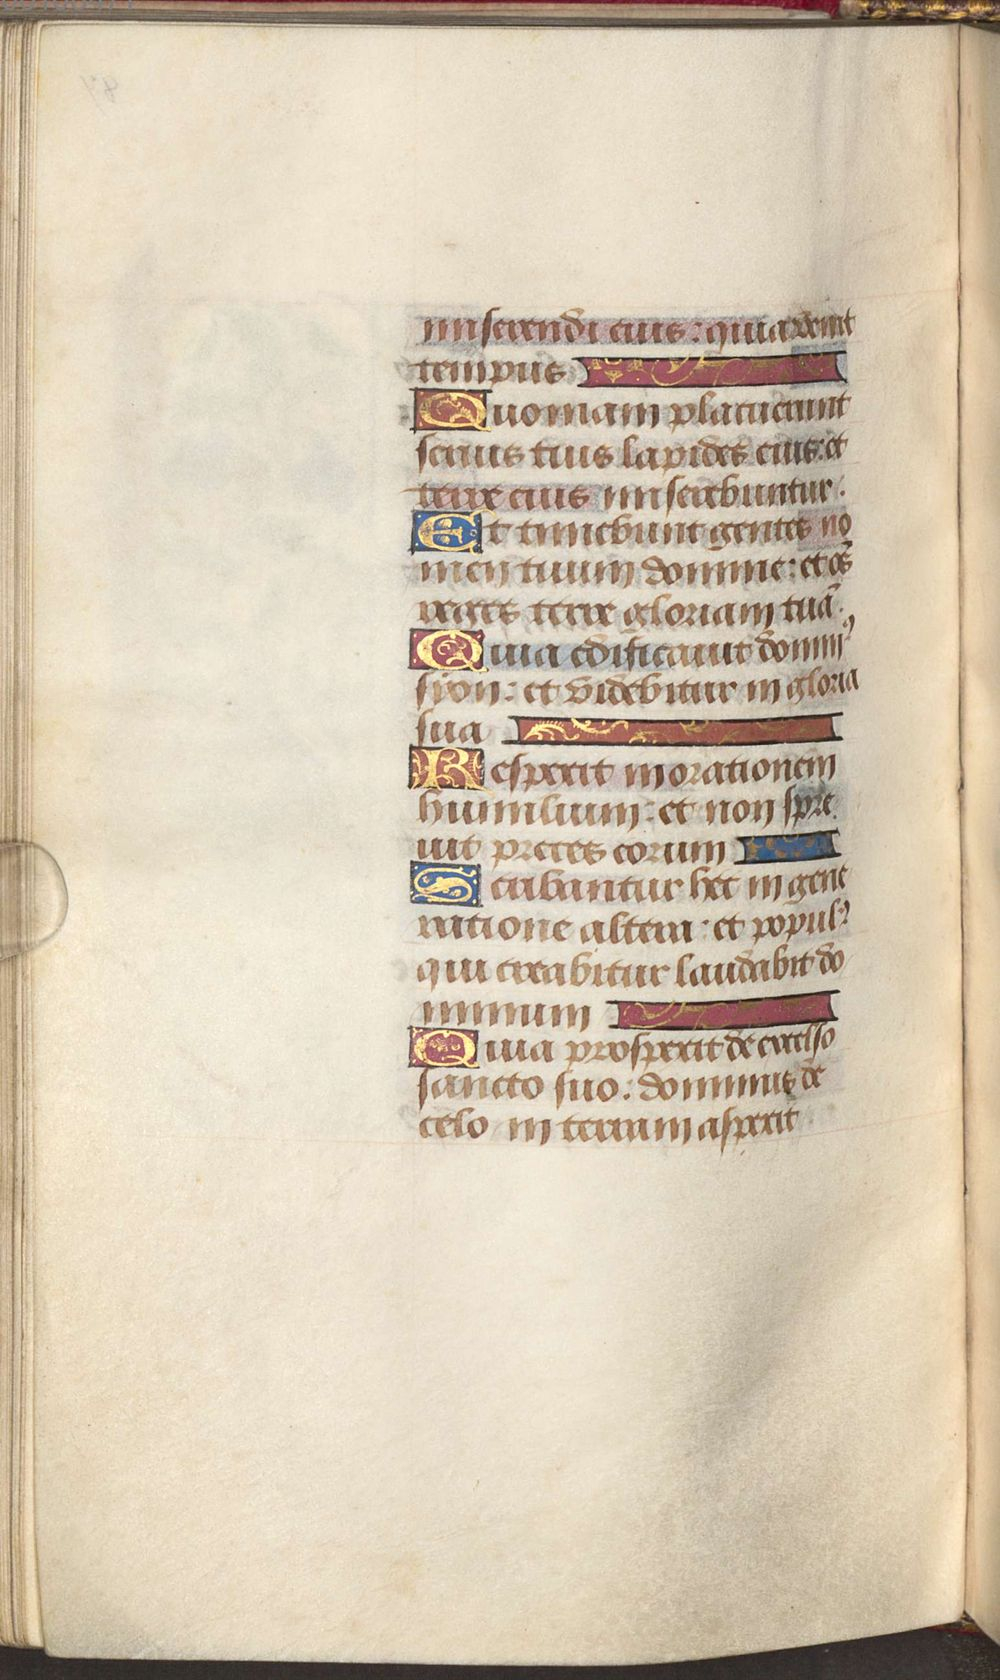 miserendi eius: quia venit
tempus
Quoniam placuerunt
seruis tuis lapides eius: et
terre eius miserebuntur.
Et timebunt gentes no
men tuum domine: et om̄s
reges terre gloriam tuā.
Quia edificauit domin⁹
syon: et videbitur in gloria
sua
Respexit in orationem
humilium: et non spre
uit preces eorum
Scribantur hec in gene
ratione altera: et popul⁹
qui creabitur laudabit do
minum
Quia prospexit de excelso
sancto suo: dominus de
celo in terram aspexit